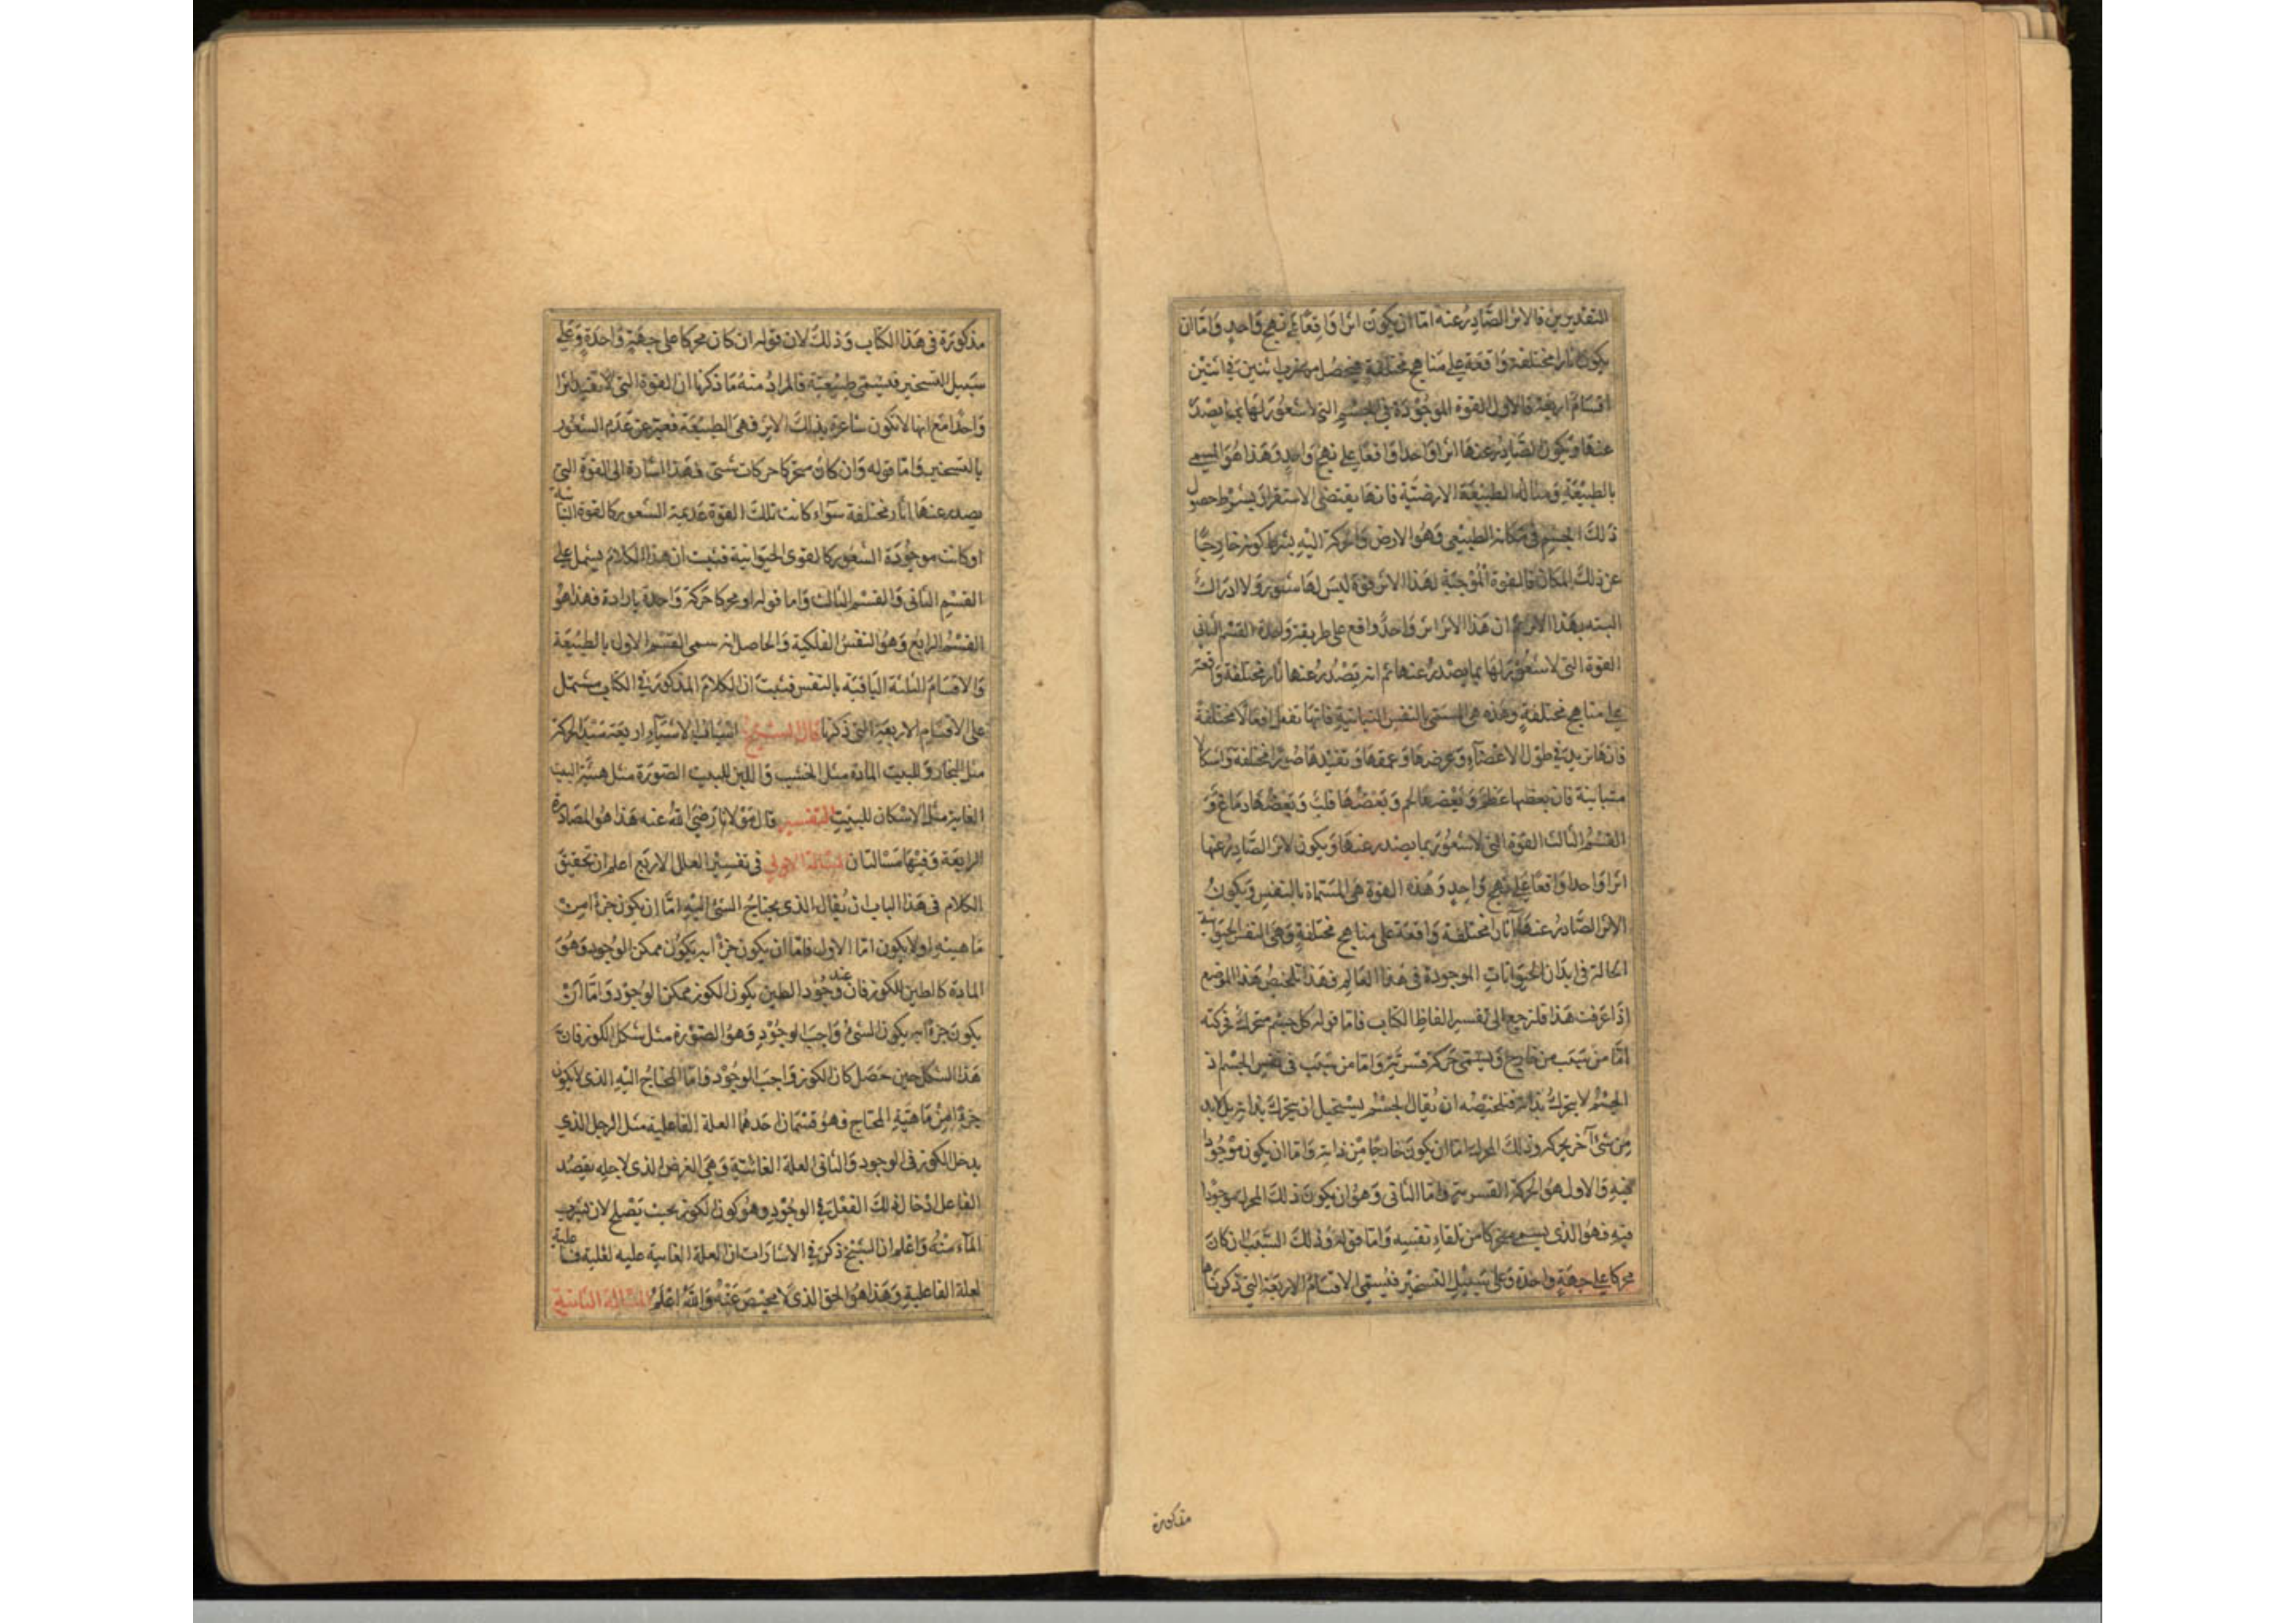 التقديرين فالاثر الصَّادِر عنه امّا ان يكون اثرًا وَاقِعًا عَلى نهجٍ وَاحدٍ وَامّا ان
يكون اثارا مختلفة وَاقعَة على مَناهج مختلفةٍ فيحصُل من ضرب اثنين في اثنين
اقسامٌ اربعة فالاول القوة الموجُودَة في الجسْمِ التي لا شعُورَ لها بما يصْدر
عنها وَيكون الصَّادِر عنها اثرا وَاحدا وَاقعًا على نهج وَاحدٍ وَهَذا هُوَ المسمى
بالطبيعَةِ وَمثاله الطبيعَة الارضيّة فانها يقتضى الاستقرار بشرط حصول
ذلك الجسْمِ في مَكانه الطبيعى وَهُو الارض وَالحركة اليْهِ بشرط كونه خارِجًا
عن ذلك المكان فالقوة الْمُوجبَة لهَذا الاثر قوة ليسَ لهَا شعُور وَلا ادراك
البته بهَذا الاثر ثم ان هَذا الاثر اثر وَاحدٌ واقع على طريقة وَاحدة القسْم الثانى
القوة التي لا شعُوْرَ لهَا بما يصْدر عنها ثم انه يَصْدُر عنها اثار مختلفة وَاقعة
على مناهج مختلفةٍ وَهَذه هى المسمى بالنفس النباتيةِ فانها تفعل افعالا مختلفةً
فانها تزيد في طوْل الاعْضآءِ وَعَرضها وَعمقها وَتفيدها صُوَرا مختلفة وَاشكالا
متباينة فان بعظها عَظْمٌ وَبَعْضهَا لحم وَبَعْضُهَا قلبٌ وَبَعْضُهَا دمَاغ وَ
القِسْمُ الثالث القوة التي لا شعُوْرَ بما يصْدر عنهَا وَيكون الاثر الصَّادِرُ عنها
اثرًا وَاحدا وَاقعًا عَلى نهجٍ وَاحِدٍ وَهُذه القوة هى المسَمّاة بالنفسِ وَيكونُ
الاثر الصَّادِرُ عنهَا آثارا مختلفة وَاقعَة على مناهج مختلفةٍ وَهى النفس الحيَوانية
الحالة في ابدَان الحيَوَاناتِ الموجودة في هَذا العَالِم فهَذا تلخيصُ هَذا الموْضع
اِذَا عَرَفت هَذا فلنرجع الى تفسير الفاظِ الكتَابِ فامّا قوله كل جسْم متحرك فحركته
امّا منْ سَبَب من خارج وَيسمّى حَركة قسرية وَامّا من سَبَب في نفس الجسْم اذ
الجسْمُ لا يتحركُ بذاته فتلخيْصُه ان يُقال الجسْم يستحيل ان يتحرك بذاته بل لابد
مِنْ شيءٍ آخر يحركه وَذلكَ المحرك امّا ان يكونَ خارجًا مِنْ ذاته وَامّا ان يكون موْجُودا
فيْهِ وَالاول هُوَ الحركة القسرية وَامّا الثانى وَهُوَ ان يكون ذلكَ المحرك موجُودا
فيهِ فهُوَ الذى يسمى متحركا من تلقاءِ نفسِه وَامّا قوْله وَذلك السَّبَبُ ان كانَ
محركا على جهةٍ واحدة وَعلى سَبيْل التسخيْر فيُسمى الاقسامُ الاربَعَة التي ذكرنَاها
مذكورة
مذكوْرَة في هَذا الكتَاب وَذلكَ لان قوله ان كان محركا على جهَةٍ وَاحدَةٍ وَعَلى
سَبيل التسخير فيسَمّى طبيْعَة فالمرادُ منهُ مَا ذكرنا ان القوة التي لا تفيد اثرًا
وَاحدًا مَع انها لا تكون شاعرة بذلكَ الاثر فهى الطبيْعَة فعبّر عن عَدَم الشعُور
بالتسخير وَامّا قوله وَان كان متحركا حركات شتى فهَذا اشارة الى القوة التي
يصدر عنها اثار مختلفة سَواء كانت تلكَ القوة عَديمة الشعور كالقوة النباتية
او كانت موجُودَة الشعُور كالقوى الحيوانية فثبت ان هذا الكلامَ يشتمل على
القسْمِ الثانى وَالقسْم الثالث وَاما قوله او محركا حَركة وَاحدة بارادة فهذا هُوَ
القسْمُ الرابع وَهوُ النفسُ الفلكية وَالحاصل انه سمى القسْمَ الاول بالطبيْعَة
وَالاقسَامَ الثلثة الباقيَة بالنفس فثبت ان الكلامَ المذكور في الكتاب مشتمل
على الاقسَام الاربعَة التي ذكرنها قال الشيخ اسبَاب الاشيَآءِ اربعَة مَبْدأ الحركة
مثل النجار للبيت المادة مثل الخشب وَاللبن للبيت الصّورَة مثل هيئة البيت
الغايَة مثل الاسْكان للبيْتِ التفسير قال مَوْلانا رَضى اللهُ عنه هَذا هُوَ المصَادرة
الرابعَة وَفيْهَا مسْالتان المسئلة الاولى في تفسير العلل الاربَع اعلم ان تحقيق
الكلام في هَذا الباب ان يُقال الذى يحتاجُ الشئ اليْهِ امّا ان يكون جزءا مِنْ
مَاهيتهِ او لا يكون امّا الاول فامّا ان يكون جزءا به يَكوُن ممكن الوُجود وَهُوَ
المادة كالطين للكوز فان عند وُجُود الطين يكون الكوز ممكن الوُجوْد وَامّا انْ
يكونَ جزءًا به يكون الشئُ وَاجبَ الوجُوْدِ وَهوُ الصّوْرة مثل شكل الكوز فانَ
هَذا الشكل حين حَصَل كان الكوز وَاجبَ الوجُوْد وَامّا المحتاج اليْهِ الذى لا يكون
جزءًا مِنْ مَاهيّةِ المحتاج فهوُ قسْمان احَدهُما العلة الفاعلية مثل الرجل الذى
يدخل الكوز في الوجود وَالثانى العلة الغائيّة وَهىَ الغرض الذى لاجله يقصُد
الفاعل ادْخال ذلكَ الفعْل في الوجُوْدِ وهُوَ كون الكوز بحيث يَصْلح لان يشرب
المآء منْهُ وَاعْلم ان الشيْخ ذكر في الاشارات ان العلة الغايية علية لعلية فاعلية
لعلة الفاعليةِ وَهَذا هُوَ الحق الذى لا محيْصَ عَنْهُ وَاللهُ اعْلَمُ المسْئلة الثانيَة